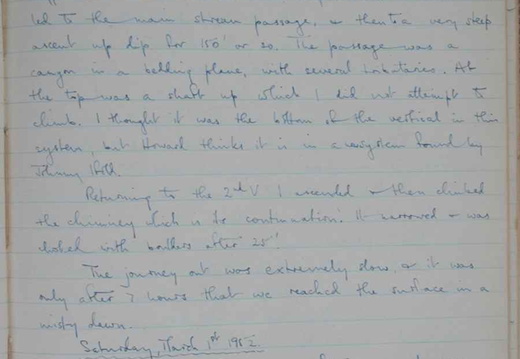 led to the main stream passage, & then to a very steep
ascent up dip for 150' or so. The passage was a
canyon in a bedding plane, with several tributaries. At
the top was a shaft up which I did not attempt to
climb. I thought it was the bottom of the vertical in this
system, but Howard thinks it is in a new system found by
Johnny
Returning to the 2nd V I ascended & then climbed
the chimney which is its continuation. It narrowed & was
choked with boulders after 25'
The journey out was extremely slow, & it was
only after 7 hours that we reached the surface in a
misty dawn.
Saturday, March 1st 1952.